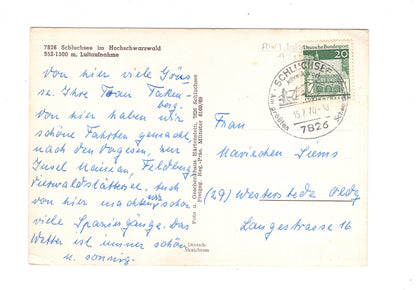 7826 Schluchsee im Hochschwarzwald
952-1300 m. Luftaufnahme
Von hier viele
Ihre Frau
Von hier haben wir
schöne Fahrten gemacht,
nach den Vogesen, zur
Insel Mainau, Feldberg
Vierwaldstättersee. Auch
von hier machten wir schon
viele Spaziergänge. Das
Wetter ist immer schön
u. sonnig.
Foto u. Geschenkhaus 7826 Schluchsee
Freigeg. Reg.-Präs. Münster
Deutsche Bundespost
20
SCHLUCHSEE
15.7.70
7826
Frau
Mariechen Siems
(29) Westerstede Oldg
Langestrasse 16